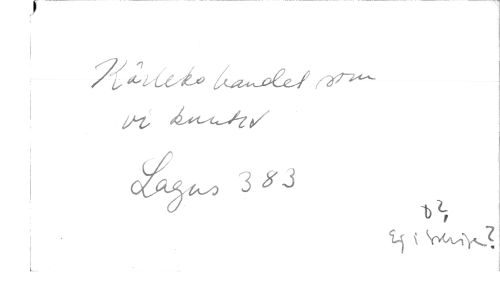 Kärleksbandet som
vi knutit
Lagus 383
D?
Ej i